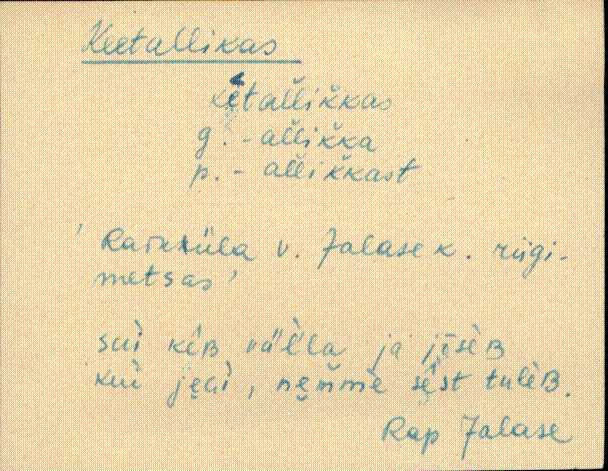 Keetallikas
kētal̆l̆ik̆kas
g. -al̆l̆ik̆ka
p. - al̆l̆ik̆kast
'Raikküla v. Jalase k. riigi-
metsas'
sùi kēʙ väl̆l̆a ja jīsèʙ
kùi jeài, nem̆mè sēst tulèʙ.
Rap Jalase